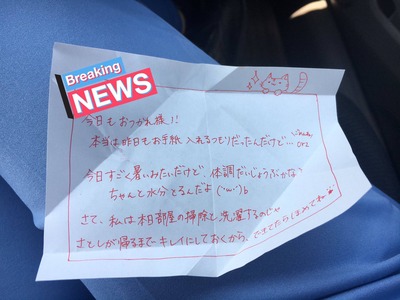 Breaking
NEWS
今日もおつかれ様!!
本当は昨日もお手紙入れるつもりだったんだけど…
orz
今日すごく暑いみたいだけど、体調だいじょうぶかな?
ちゃんと水分とるんだよ(´・ω・`)b
さて、私は本日部屋の掃除と洗濯するのじゃ
さとしが帰るまでキレイにしておくから、できてたらほめてね